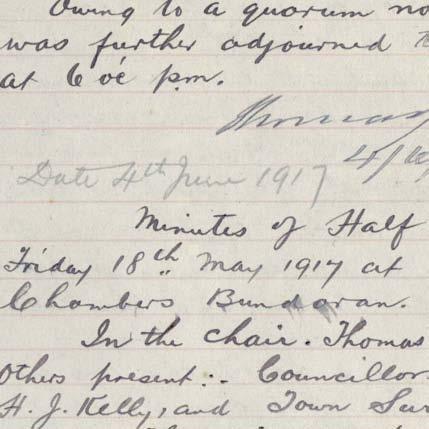 Owing to a quorum no
was further adjourned
at 6 oc p.m.
Thomas
4/
Date 4th June 1917
Minutes of Half
Friday 18th May 1917 at
Chambers Bundoran.
In the chair. Thomas
Others present:- Councillor
H. J. Kelly, and Town Sur